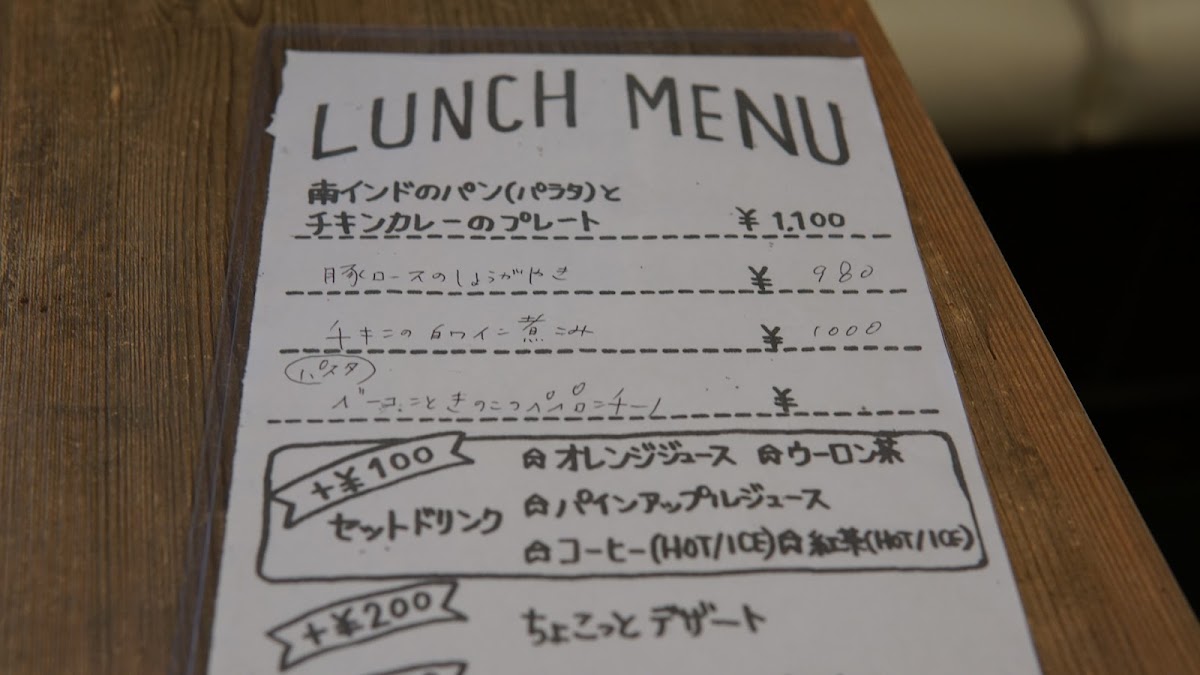 LUNCH MENU
南インドのパン(パラタ)と
チキンカレーのプレート ¥ 1,100
豚ロースのしょうがやき ¥ 980
チキンの白ワイン煮こみ ¥ 1000
パスタ
ベーコンときのこのペペロンチーノ ¥
+¥100
セットドリンク
オレンジジュース ウーロン茶
パインアップルジュース
コーヒー(HOT/ICE) 紅茶(HOT/ICE)
+¥200 ちょこっとデザート